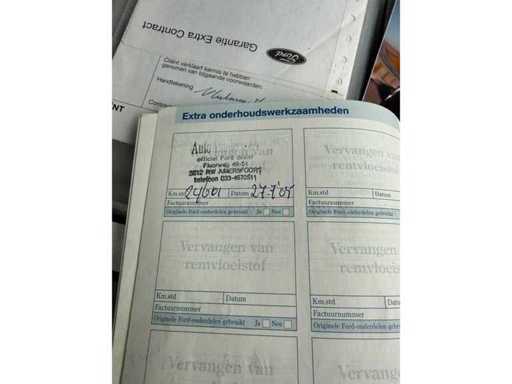 Garantie Extra Contract
Ford
Cliënt verklaart kennis te hebben
genomen van bijgaande voorwaarden.
Handtekening
Extra onderhoudswerkzaamheden
Auto
official Ford dealer
telefoon 033-4670511
Km.std Datum 27-7-'05
Factuurnummer
Originele Ford-onderdelen gebruikt Ja Nee
Vervangen van
remvloeistof
Km.std
Factuurnummer
Originele Ford-onderdelen gebruikt
Vervangen van
remvloeistof
Km.std Datum
Factuurnummer
Originele Ford-onderdelen gebruikt Ja Nee
Vervangen van
remvloeistof
Km.std Datum
Factuurnummer
Originele Ford-onderdelen gebruikt Ja
Vervangen van
Vervangen